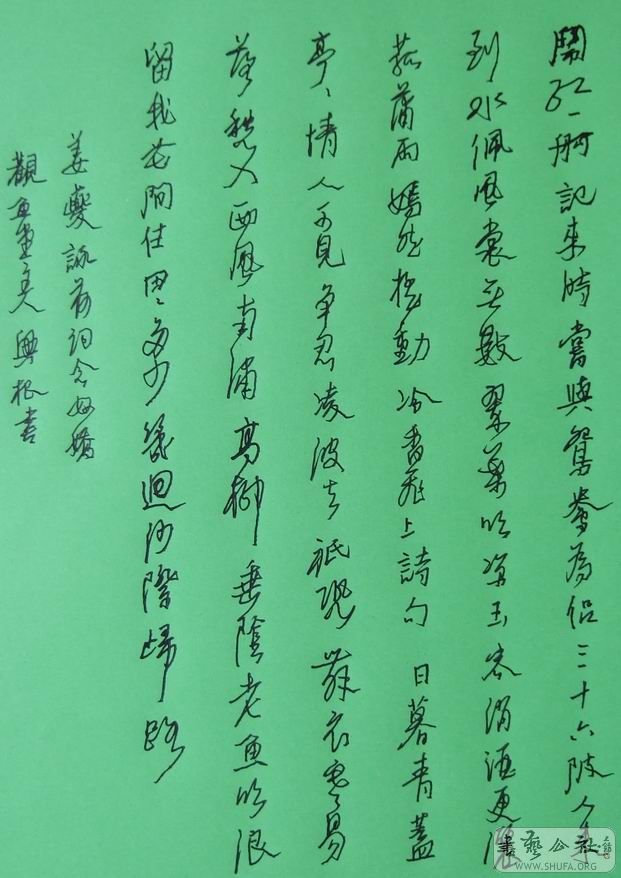 鬧紅一舸記來時嘗與鴛鴦為侶三十六陂人未
到水佩風裳无數翠葉吹涼玉容消酒更灑
菰蒲雨嫣然搖動冷香飛上詩句 日暮青蓋
亭〻情人不見争忍凌波去祇恐舞衣寒易
落愁入西風南浦高柳垂陰老魚吹浪
留我花間住田〻多少幾迴沙際歸路
姜夔詠荷詞念奴嬌
觀魚堂主人 興根書
書藝公社
WWW.SHUFA.ORG